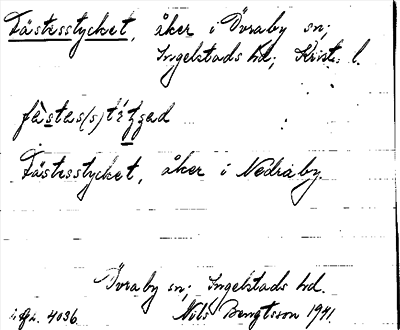 Fästesstycket, åker i Övraby sn;
Ingelstads hd; Krist. l.
Fästesstycket, åker i Nedraby
Övraby sn; Ingelstads hd.
4036. Nils Bengtsson 1941.